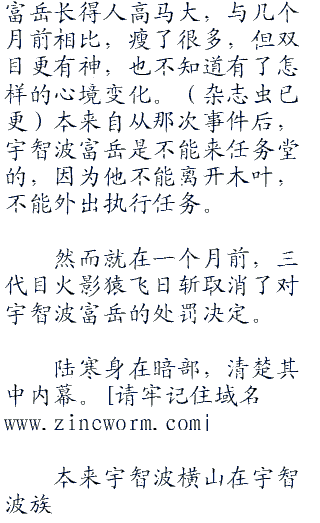 富岳长得人高马大，与几个
月前相比，瘦了很多，但双
目更有神，也不知道有了怎
样的心境变化。（杂志虫已
更）本来自从那次事件后，
宇智波富岳是不能来任务堂
的，因为他不能离开木叶，
不能外出执行任务。
然而就在一个月前，三
代目火影猿飞日斩取消了对
宇智波富岳的处罚决定。
陆寒身在暗部，清楚其
中内幕。[请牢记住域名
www.zincworm.com|
本来宇智波横山在宇智
波族